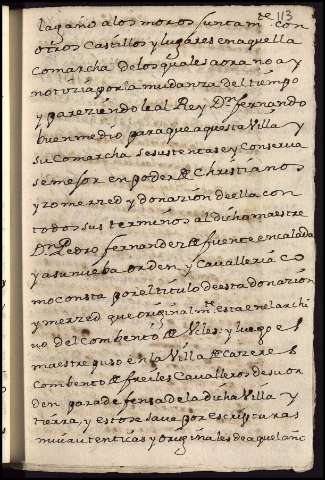 113
la gaño a los moros juntam.te con
otros Castillos y lugares en aquella
comarcha de los quales aora no ay
notizia por la mudanza del tiempo
y pareziendole al Rey Dn. fernando
buen medio para que aquesta Villa y
su Comarcha se sustentase y Conserva
se mejor en poder de Christianos
yzo merzed y donazion de ella con
todos sus terminos al dicho maestre
Dn. Pedro fernandez de fuente encalada
y a su nueba orden y Cavalleria co
mo consta por el titulo de esta donazion
y merzed que original mte. esta en el archi
no del combento de Vcles: y luego el
maestre puso en la Villa de Cazeres
Combento de freiles Cavalleros de su or
den para defensa de la dicha Villa y
tierra, y esto se save por escripturas
mui autenticas y originales de aquel año